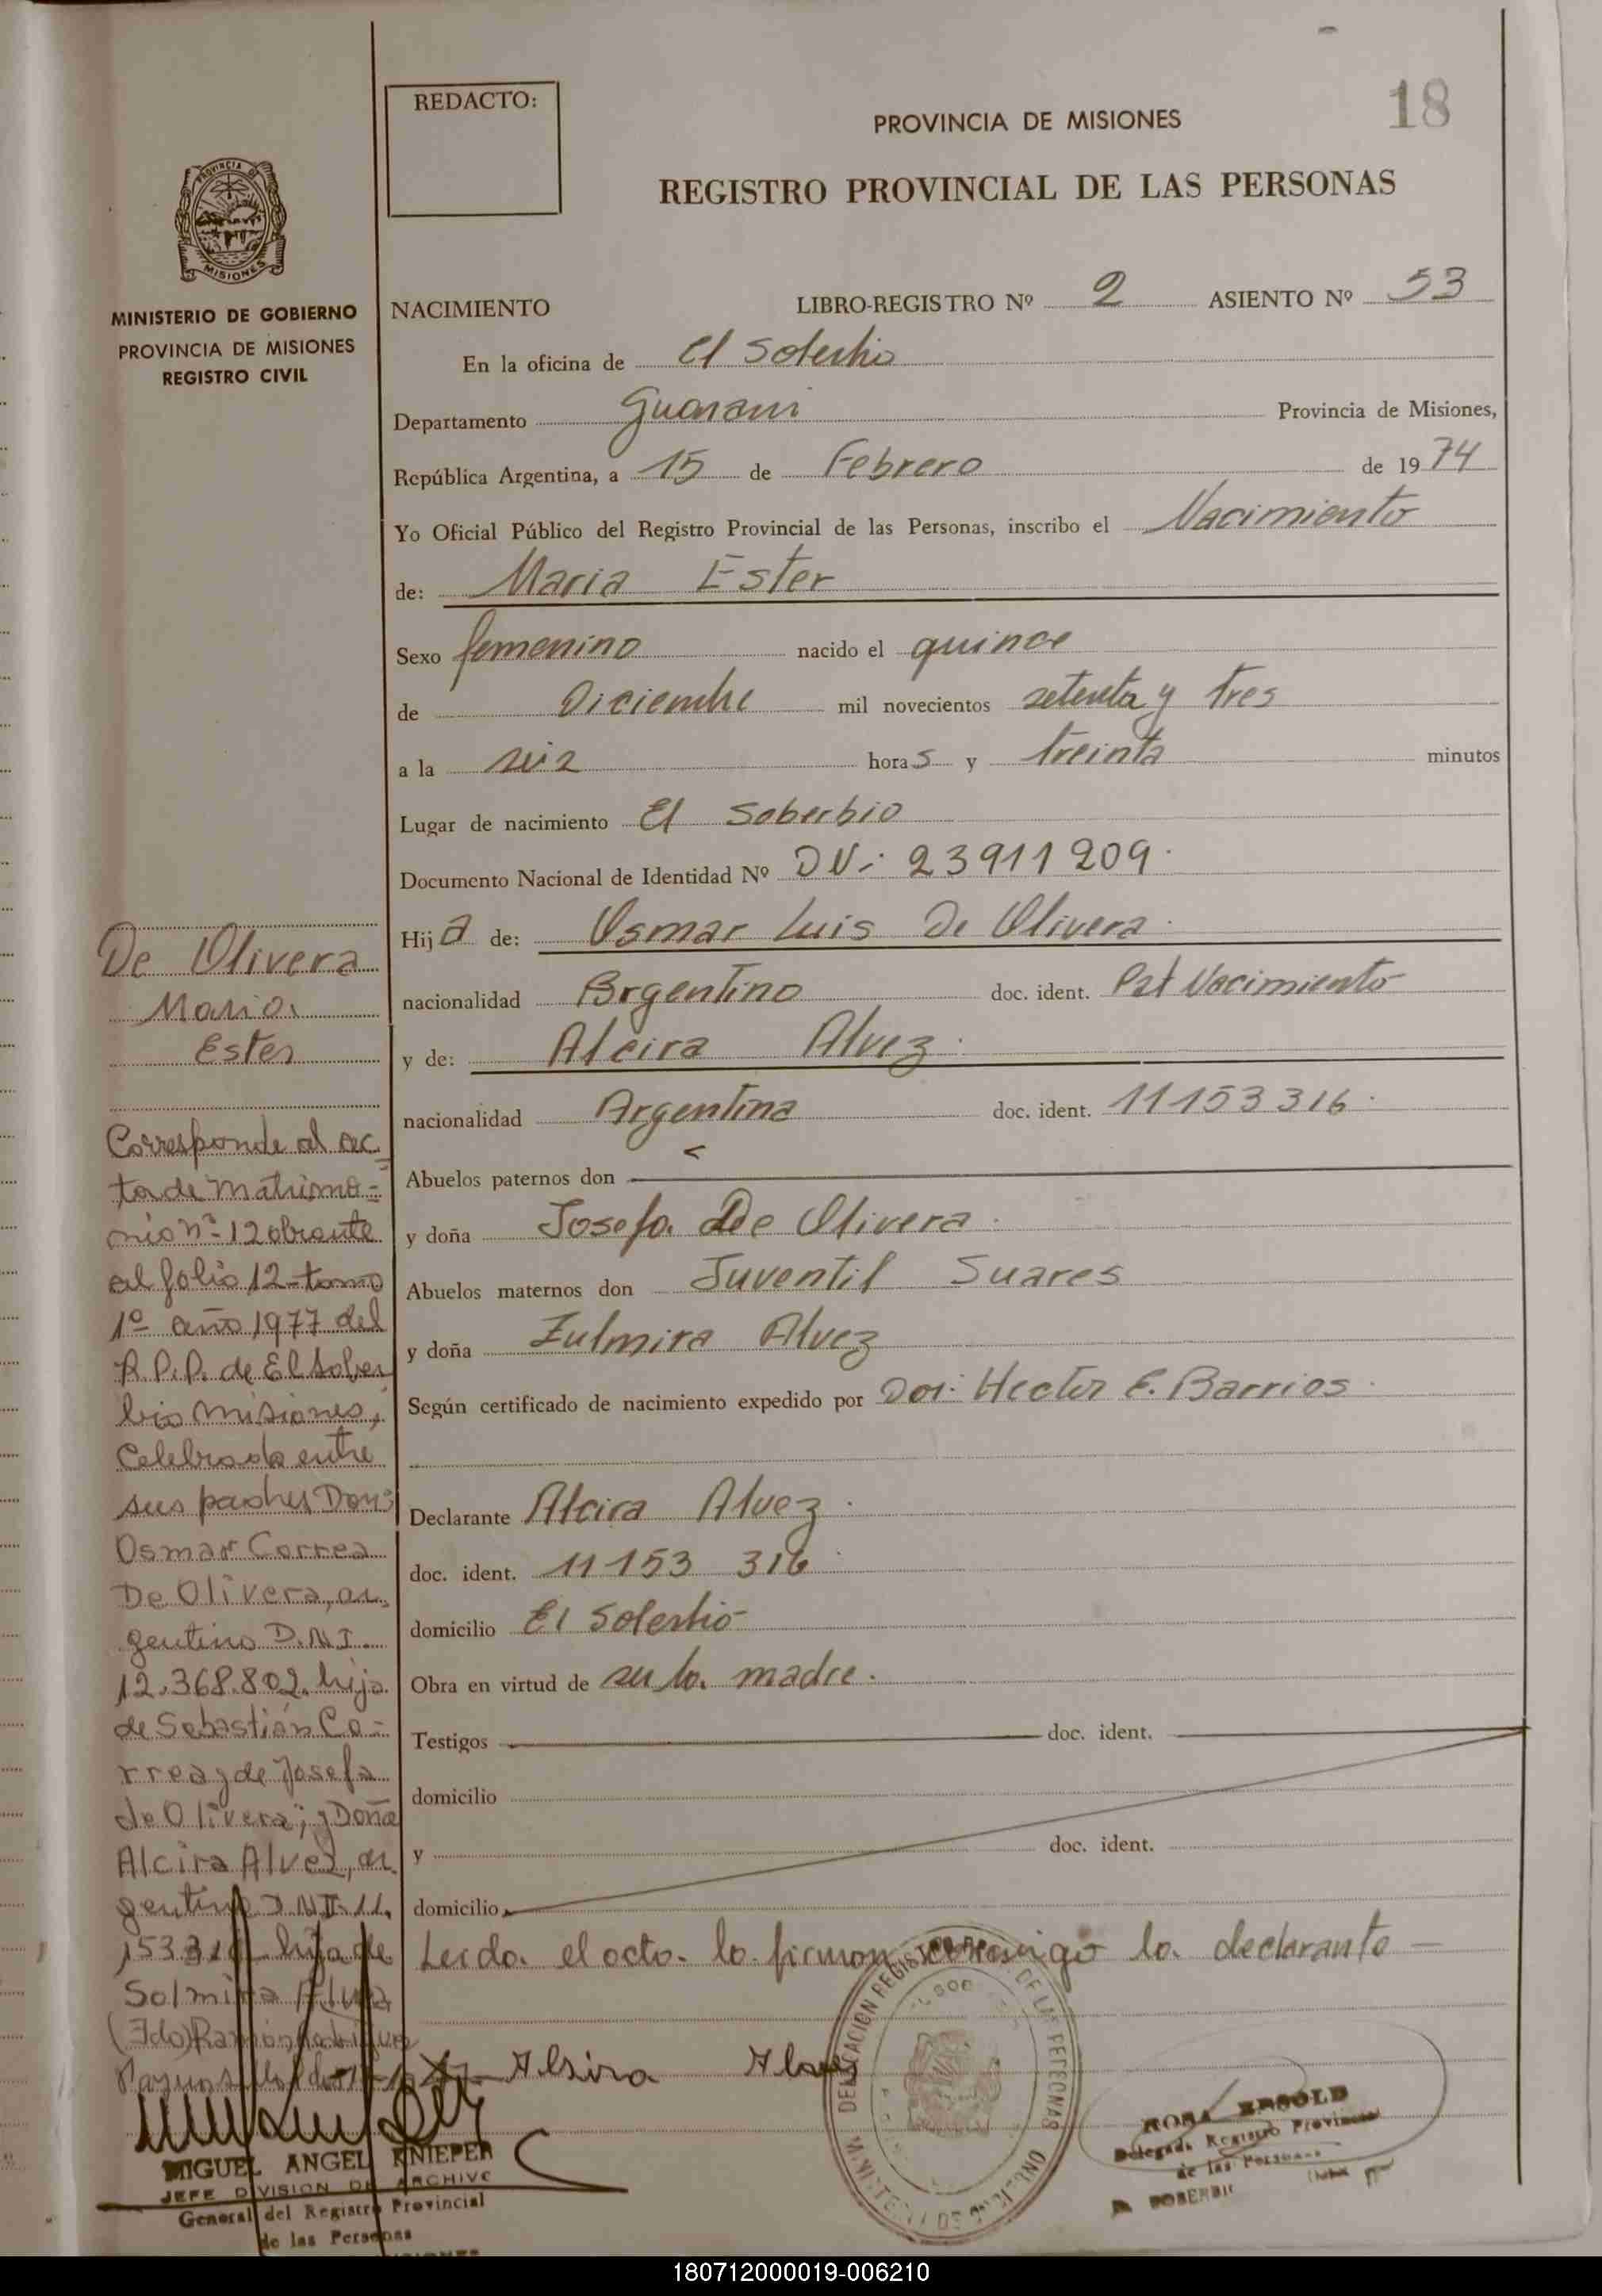 18
REDACTO:
PROVINCIA DE MISIONES
REGISTRO PROVINCIAL DE LAS PERSONAS
PROVINCIA DE
MISIONES
MINISTERIO DE GOBIERNO
PROVINCIA DE MISIONES
REGISTRO CIVIL
NACIMIENTO LIBRO-REGISTRO Nº 2 ASIENTO Nº 53
En la oficina de El Soberbio
Departamento Guarani Provincia de Misiones,
República Argentina, a 15 de Febrero de 1974
Yo Oficial Público del Registro Provincial de las Personas, inscribo el Nacimiento
de: Maria Ester
Sexo femenino nacido el quince
de Diciembre mil novecientos setenta y tres
a la seis horas y treinta minutos
Lugar de nacimiento El Soberbio
Documento Nacional de Identidad Nº 23911209.
Hija de: Osmar Luis De Olivera.
nacionalidad Argentino doc. ident. Nacimiento
y de: Alcira Alvez.
nacionalidad Argentina doc. ident. 11153316.
Abuelos paternos don
y doña Josefa De Olivera.
Abuelos maternos don Juventil Suares
y doña Zulmira Alvez
Según certificado de nacimiento expedido por Hector E. Barrios.
Declarante Alcira Alvez.
doc. ident. 11153 316
domicilio El Soberbio
Obra en virtud de ser la madre.
Testigos doc. ident.
domicilio
y doc. ident.
domicilio
Leida el acta la firman conmigo la declarante —
Alsira Alves
De Olivera
Maria
Ester
Corresponde al ac-
ta de Matrimo-
nio nº 12 obrante
al folio 12 - tomo
1º año 1977 del
R.P.P. de El Sober
bio Misiones,
Celebrado entre
sus padres Don:
Osmar Correa
De Olivera, ar-
gentino D.N.I.
12.368.802 hijo
de Sebastián Co-
rrea y de Josefa
de Olivera; y Doña
Alcira Alvez, ar
gentina D.N.I. 11.
153.316 hija de
Solmira Alvez
MIGUEL ANGEL KNIEPER
JEFE DIVISION DE ARCHIVO
General del Registro Provincial
de las Personas
DELEGACION REGISTRO DE LAS PERSONAS
MINISTERIO DE GOBIERNO
Delegada Registro Provincial
de las Personas
SOBERBIO
180712000019-006210